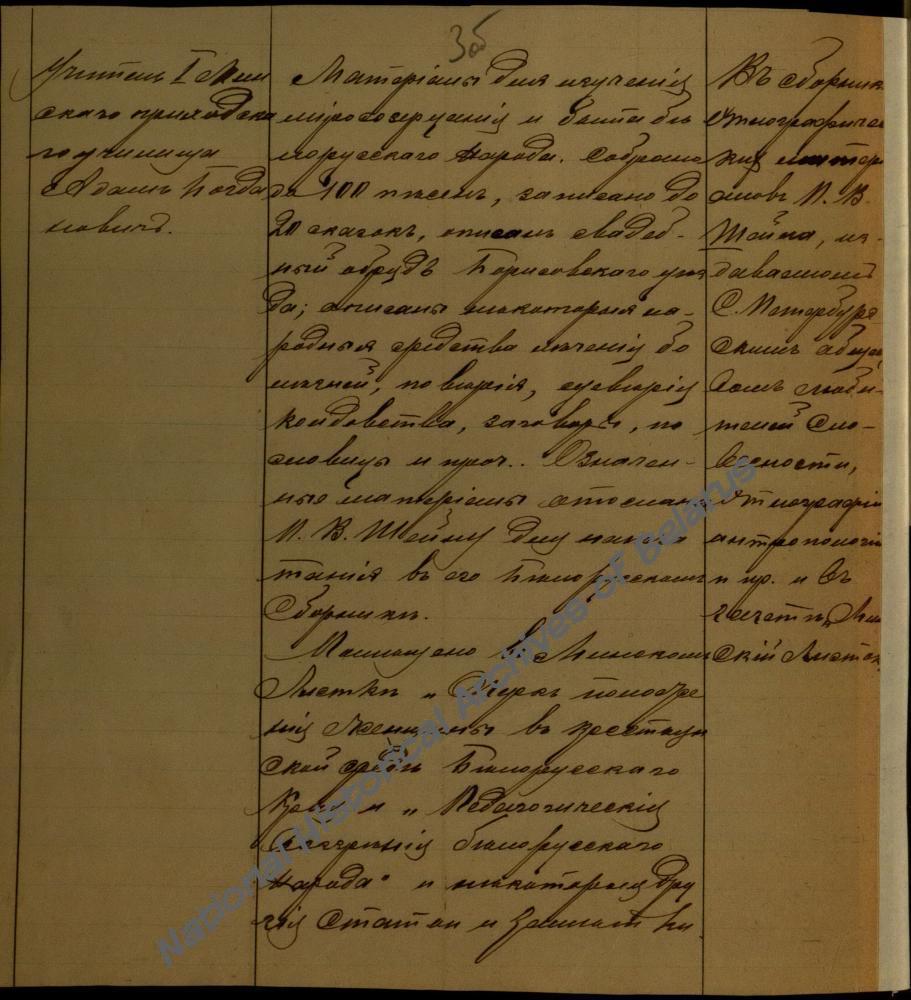 3об
Учитель I Мин
скаго приходска
го училища
Адамъ Богда
новичъ.
Матеріалы для изученія
міросозерцанія и быта бѣ
лорусскаго народа. Собрано
до 100 пѣсенъ, записано до
20 сказокъ, описанъ свадеб-
ный обрядъ Борисовскаго уѣз
да; описаны нѣкоторыя на-
родныя средства лѣченія бо
лѣзней, повѣрія, суевѣрія
колдовства, заговоры, по
словицы и проч.. Означен-
ные матеріалы отосланы
П. В. Шейну для напеча
танія въ его Бѣлорусскомъ
Сборникѣ.
Помѣщено въ Минскомъ
Листкѣ „Очеркъ положе
нія женщины въ крестьян
ской средѣ Бѣлорусскаго
Края и „Педагогическія
воззрѣнія бѣлорусскаго
Народа" и нѣкоторыя дру
гія Статьи и Замѣтки.
Въ сборникѣ
Этнографичес
кихъ матері
аловъ П. В.
Шейна, из-
даваемомъ
С. Петербург
скимъ обще
вомъ люби-
телей Сло-
весности,
Этнографіи
антропологіи
и пр. и въ
газетѣ „Мин
скій Листокъ
National Historical Archives of Belarus